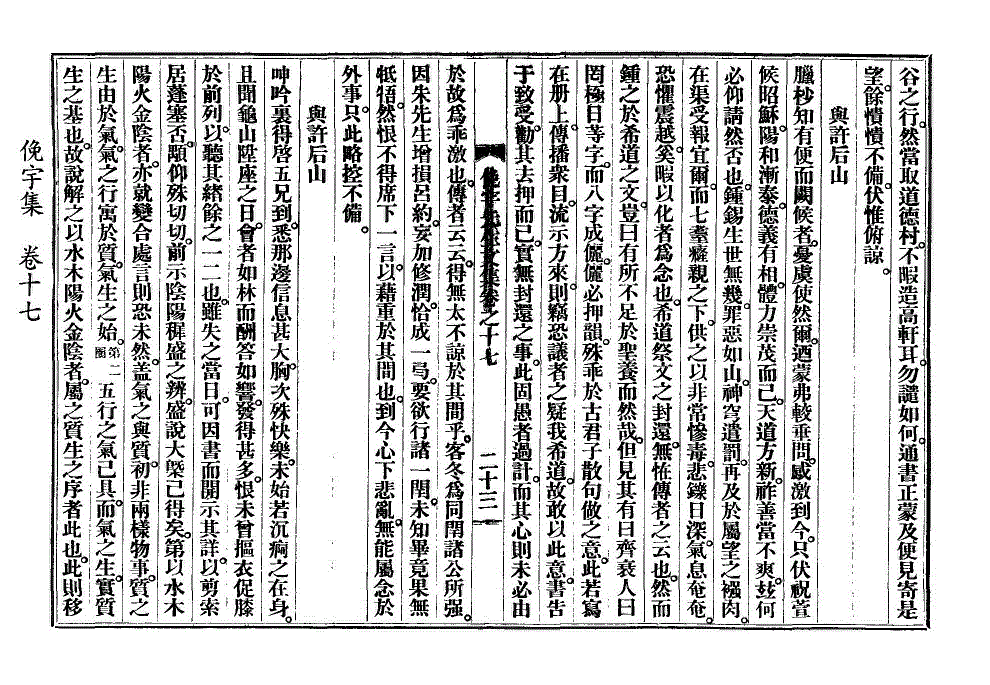 谷之行。然當取道德村。不暇造高軒耳。勿譴如何。通書正蒙及便見寄是
望。餘憒憒不備。伏惟俯諒。
與許后山
臘杪知有便而闕候者。憂虞使然爾。迺蒙弗較垂問。感激到今。只伏祝萱
候昭穌。陽和漸泰。德義有相。體力崇茂而已。天道方新。祚善當不爽。玆何
必仰請然否也。鍾錫生世無幾。罪惡如山。神穹遣罰。再及於屬望之襁肉。
在渠受報宜爾。而七耋癃親之下。供之以非常慘毒。悲鑠日深。氣息奄奄。
恐懼震越。奚暇以化者爲念也。希道祭文之封還。無恠傳者之云也。然而
鍾之於希道之文。豈曰有所不足於聖養而然哉。但見其有曰齊衰人曰
罔極日等字。而八字成儷。儷必押韻。殊乖於古君子散句倣之意。此若寫
在册上。傳播衆目。流示方來。則竊恐議者之疑我希道。故敢以此意書告
于致受。勸其去押而已。實無封還之事。此固愚者過計。而其心則未必由
俛宇先生文集卷之十七 二十三
於故爲乖激也。傳者云云。得無太不諒於其間乎。客冬爲同閈諸公所强。
因朱先生增損呂約。妄加修潤。恰成一弓。要欲行諸一閈。未知畢竟果無
牴牾。然恨不得席下一言。以藉重於其間也。到今心下悲亂。無能屬念於
外事。只此略控不備。
與許后山
呻吟裏得啓五兄到。悉那邊信息甚大。胸次殊快樂。未始若沉痾之在身。
且聞龜山陞座之日。會者如林而酬答如響。發得甚多。恨未曾摳衣促膝
於前列。以聽其緖餘之一二也。雖失之當日。可因書而開示其詳。以剪索
居蓬塞否。顒仰殊切切。前示陰陽穉盛之辨。盛說大槩已得矣。第以水木
陽火金陰者。亦就變合處言則恐未然。盖氣之與質。初非兩樣物事。質之
生由於氣。氣之行寓於質。氣生之始。第二圈 五行之氣已具。而氣之生。實質
生之基也。故說解之以水木陽火金陰者。屬之質生之序者此也。此則移
俛宇集 卷十七